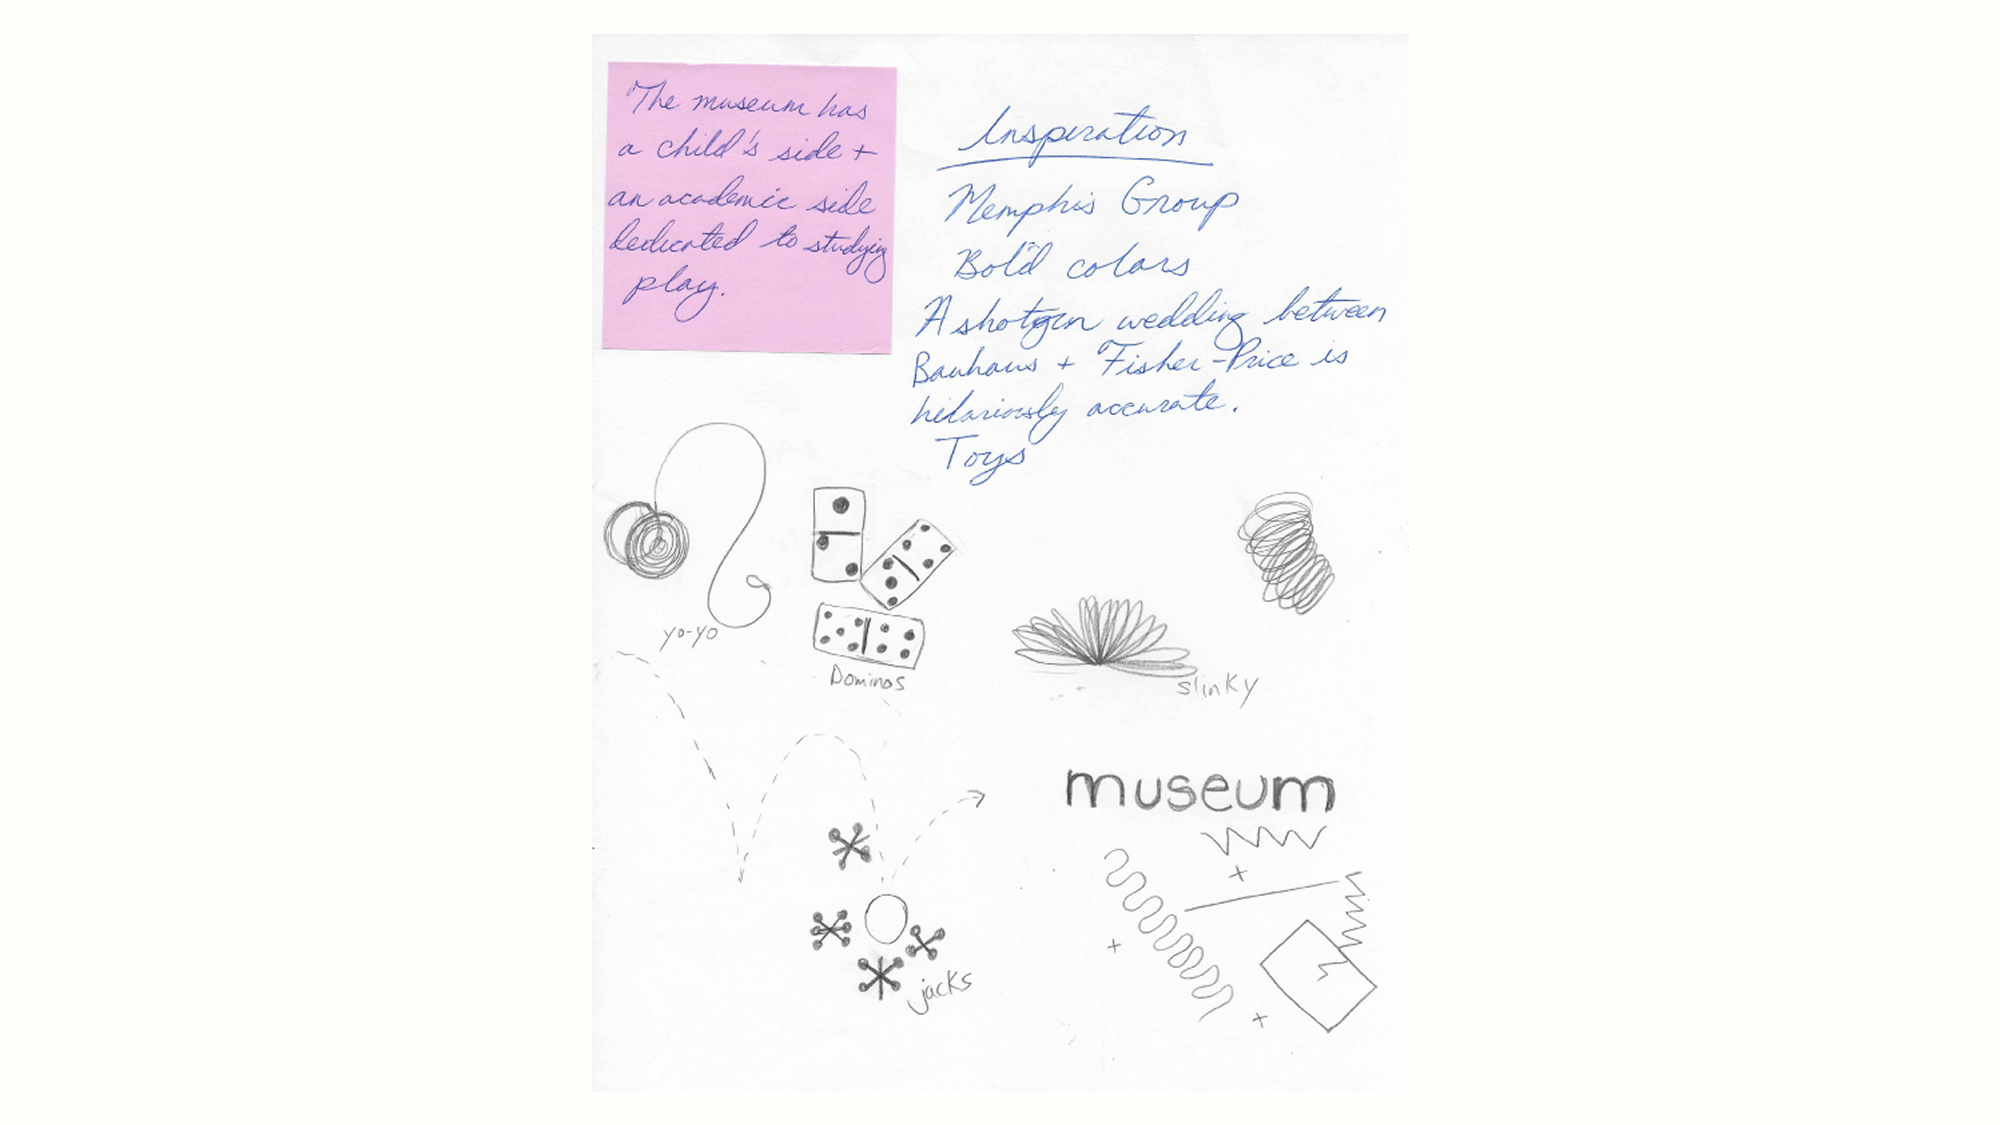 The museum has
a child's side +
an academic side
dedicated to studying
play.
Inspiration
Memphis Group
Bold colors
A shotgun wedding between
Bauhaus + Fisher-Price is
hilariously accurate.
Toys
yo-yo
Dominos
slinky
museum
jacks